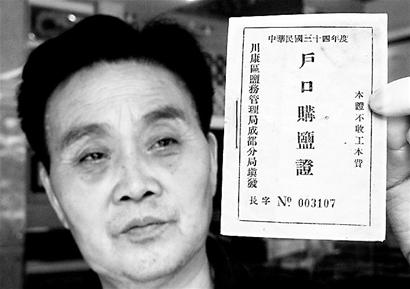 中華民國三十四年度
本證不收工本費
戶口購鹽證
川康區鹽務管理局成都分局填發
長字 № 003107